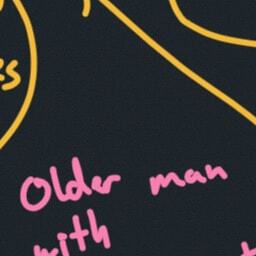 Older man
with